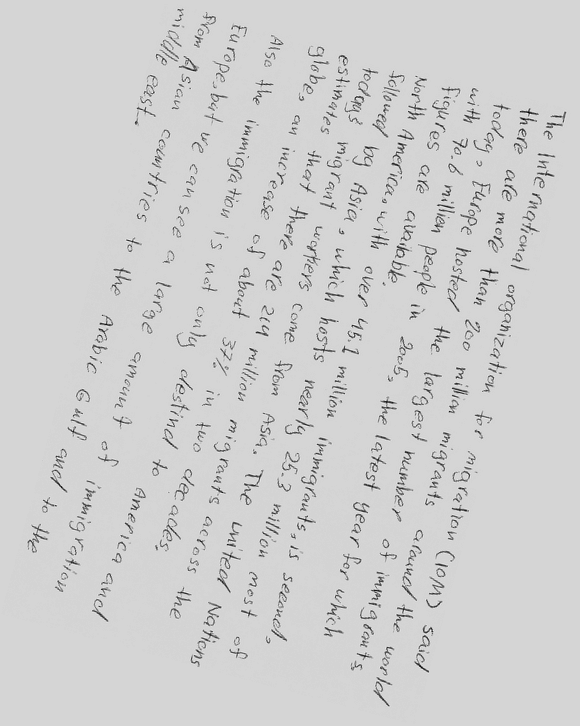 The International organization for migration (IOM) said
there are more than 200 million migrants around the world
today, Europe hosted the largest number of immigrants,
with 70.6 million people in 2005, the latest year for which
figures are available.
North America, with over 45.1 million immigrants, is second,
followed by Asia, which hosts nearly 25.3 million most of
today's migrant workers come from Asia. The United Nations
estimates that there are 214 million migrants across the
globe, an increase of about 37% in two decades.
Also the immigration is not only destind to America and
Europe, but we can see a large amount of immigration
from Asian countries to the Arabic Gulf and to the
middle east.